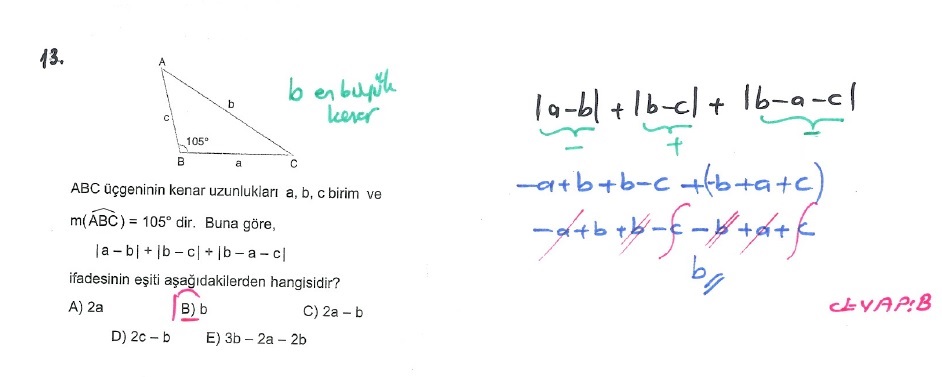 13.
A
b
c
105°
B
a
C
b en büyük
kenar
ABC üçgeninin kenar uzunlukları a, b, c birim ve
m(ABC) = 105° dir. Buna göre,
|a – b| + |b – c| + |b – a – c|
ifadesinin eşiti aşağıdakilerden hangisidir?
A) 2a
B) b
C) 2a – b
D) 2c – b
E) 3b – 2a – 2b
|a-b| + |b-c| + |b-a-c|
- + -
-a+b+b-c+(-b+a+c)
-a+b+b-c-b+a+c
b
CEVAP:B